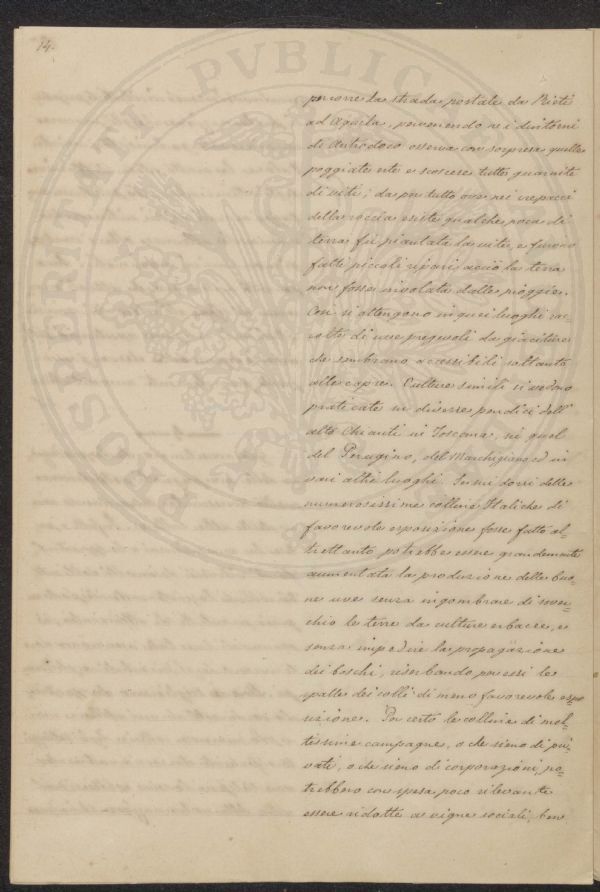 14.
percorre la strada postale da Rieti
ad Aquila, pervenendo nei dintorni
di Antrodoco osserva con sorpresa quelle
poggiate erte e scoscese tutte guarnite
di viti; da per tutto ove nei crepacci
della roccia esiste qualche poco di
terra fu piantata la vite, e furono
fatti piccoli ripari acciò la terra
non fosse involata dalle pioggie.
Così si ottengono in quei luoghi rac-
colte di uve pregevoli da giaciture
che sembrano accessibili soltanto
alle capre. Culture simili si vedono
praticate in diverse pendici dell'
alto Chianti in Toscana, in quel
del Perugino, del Marchigiano ed in
vari altri luoghi. Se nei dorsi delle
numerosissime colline Italiche di
favorevole esposizione fosse fatto al-
trettanto potrebbe essere grandemente
aumentata la produzione delle buo-
ne uve senza ingombrare di sover-
chio le terre da culture erbacee, e
senza impedire la propagazione
dei boschi, riserbando per essi le
spalle dei colli di meno favorevole espo-
sizione. Per certo le colline di mol-
tissime campagne, o che sieno di pri-
vati, o che sieno di corporazioni, po-
trebbero con spesa poco rilevante
essere ridotte a vigne sociali, bene
PVBLICAE
PROSPERITATI